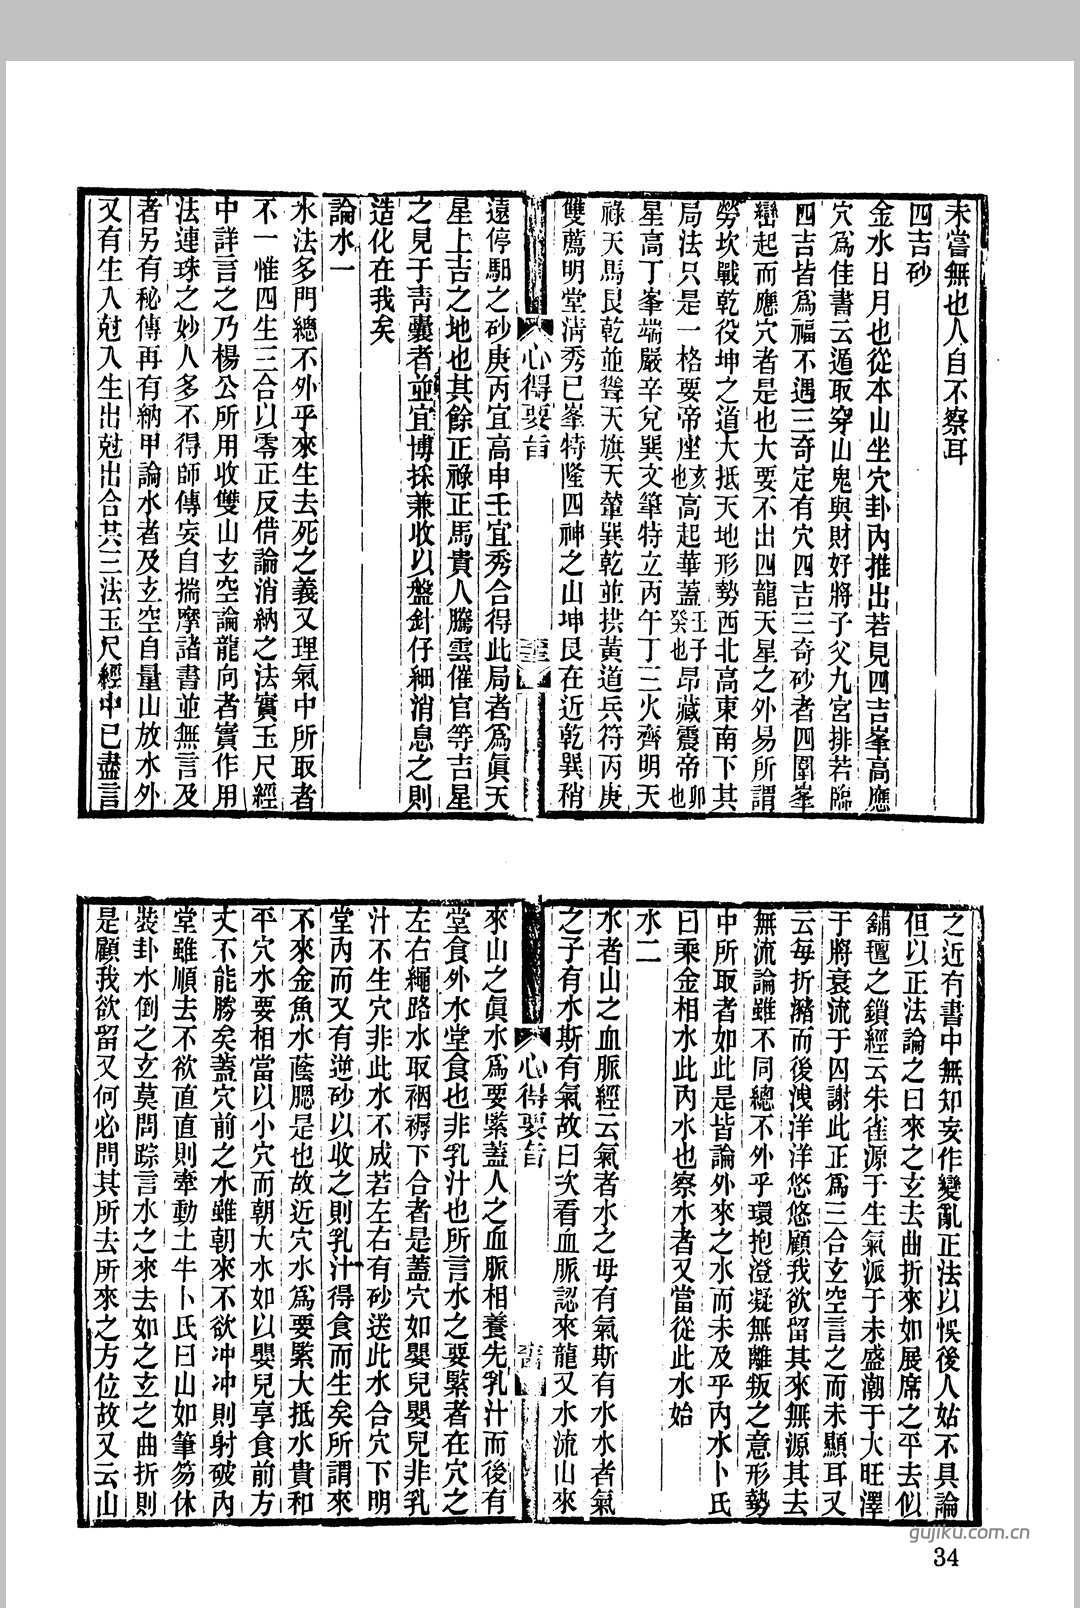 未嘗無也人自不察耳
四吉砂
金水日月也從本山坐穴卦內推出若見四吉峯高應
穴爲佳書云遁取穿山鬼與財好將子父九宮排若臨
四吉皆爲福不遇三奇定有穴四吉三奇砂者四圍峯
巒起而應穴者是也大要不出四龍天星之外易所謂
勞坎戰乾役坤之道大抵天地形勢西北高東南下其
局法只是一格要帝座亥也高起華蓋壬子癸也昂藏震帝卯也
星高丁峯端嚴辛兌巽文筆特立丙午丁三火齊明天
祿天馬艮乾並聳天旗天輦巽乾並拱黃道兵符丙庚
雙薦明堂淸秀巳峯特隆四神之山坤艮在近乾巽稍
心得要旨
遠停馹之砂庚丙宜高申壬宜秀合得此局者爲眞天
星上吉之地也其餘正祿正馬貴人騰雲催官等吉星
之見于靑囊者並宜博採兼收以盤針仔細消息之則
造化在我矣
論水一
水法多門總不外乎來生去死之義又理氣中所取者
不一惟四生三合以零正反借論消納之法實玉尺經
中詳言之乃楊公所用收雙山玄空論龍向者實作用
法連珠之妙人多不得師傳妄自揣摩諸書並無言及
者另有秘傳再有納甲論水者及玄空自量山放水外
又有生入尅入生出尅出合共三法玉尺經中已盡言
之近有書中無知妄作變亂正法以悞後人姑不具論
但以正法論之曰來之玄去曲折來如展席之平去似
舖氊之鎖經云朱雀源于生氣派于未盛潮于大旺澤
于將衰流于囚謝此正爲三合玄空言之而未顯耳又
云每折瀦而後洩洋洋悠悠顧我欲留其來無源其去
無流論雖不同總不外乎環抱澄凝無離叛之意形勢
中所取者如此是皆論外來之水而未及乎內水卜氏
曰乘金相水此內水也察水者又當從此水始
水二
水者山之血脈經云氣者水之母有氣斯有水水者氣
之子有水斯有氣故曰次看血脈認來龍又水流山來
心得要旨
來山之眞水爲要緊蓋人之血脈相養先乳汁而後有
堂食外水堂食也非乳汁也所言水之要緊者在穴之
左右繩路水取裀褥下合者是蓋穴如嬰兒嬰兒非乳
汁不生穴非此水不成若左右有砂送此水合穴下明
堂內而又有逆砂以收之則乳汁得食而生矣所謂來
不來金魚水蔭腮是也故近穴水爲要緊大抵水貴和
平穴水要相當以小穴而朝大水如以嬰兒享食前方
丈不能勝矣蓋穴前之水雖朝來不欲冲冲則射破內
堂雖順去不欲直直則牽動土牛卜氏曰山如筆笏休
裝卦水倒之玄莫問踪言水之來去如之玄之曲折則
是顧我欲留又何必問其所去所來之方位故又云山
gujiku.com.cn
34